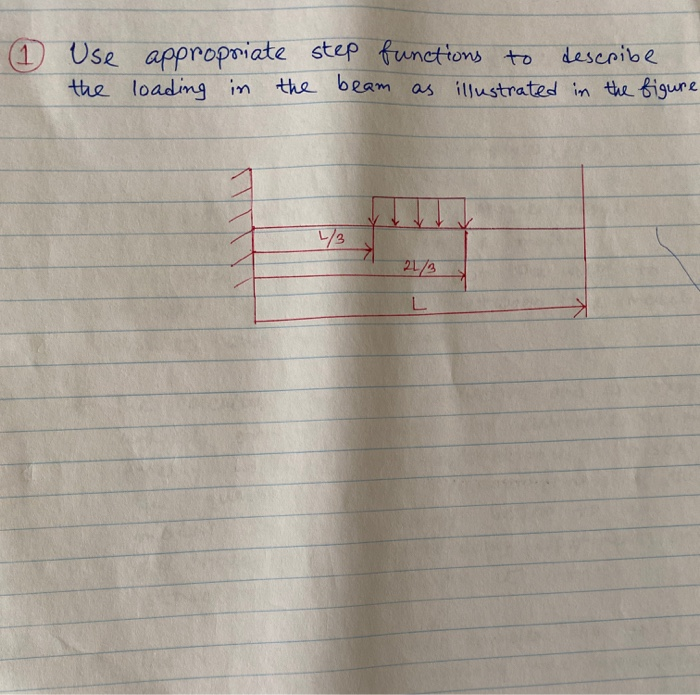 1 Use appropriate step functions to describe
the loading in the beam as illustrated in the figure
L/3
2L/3
L